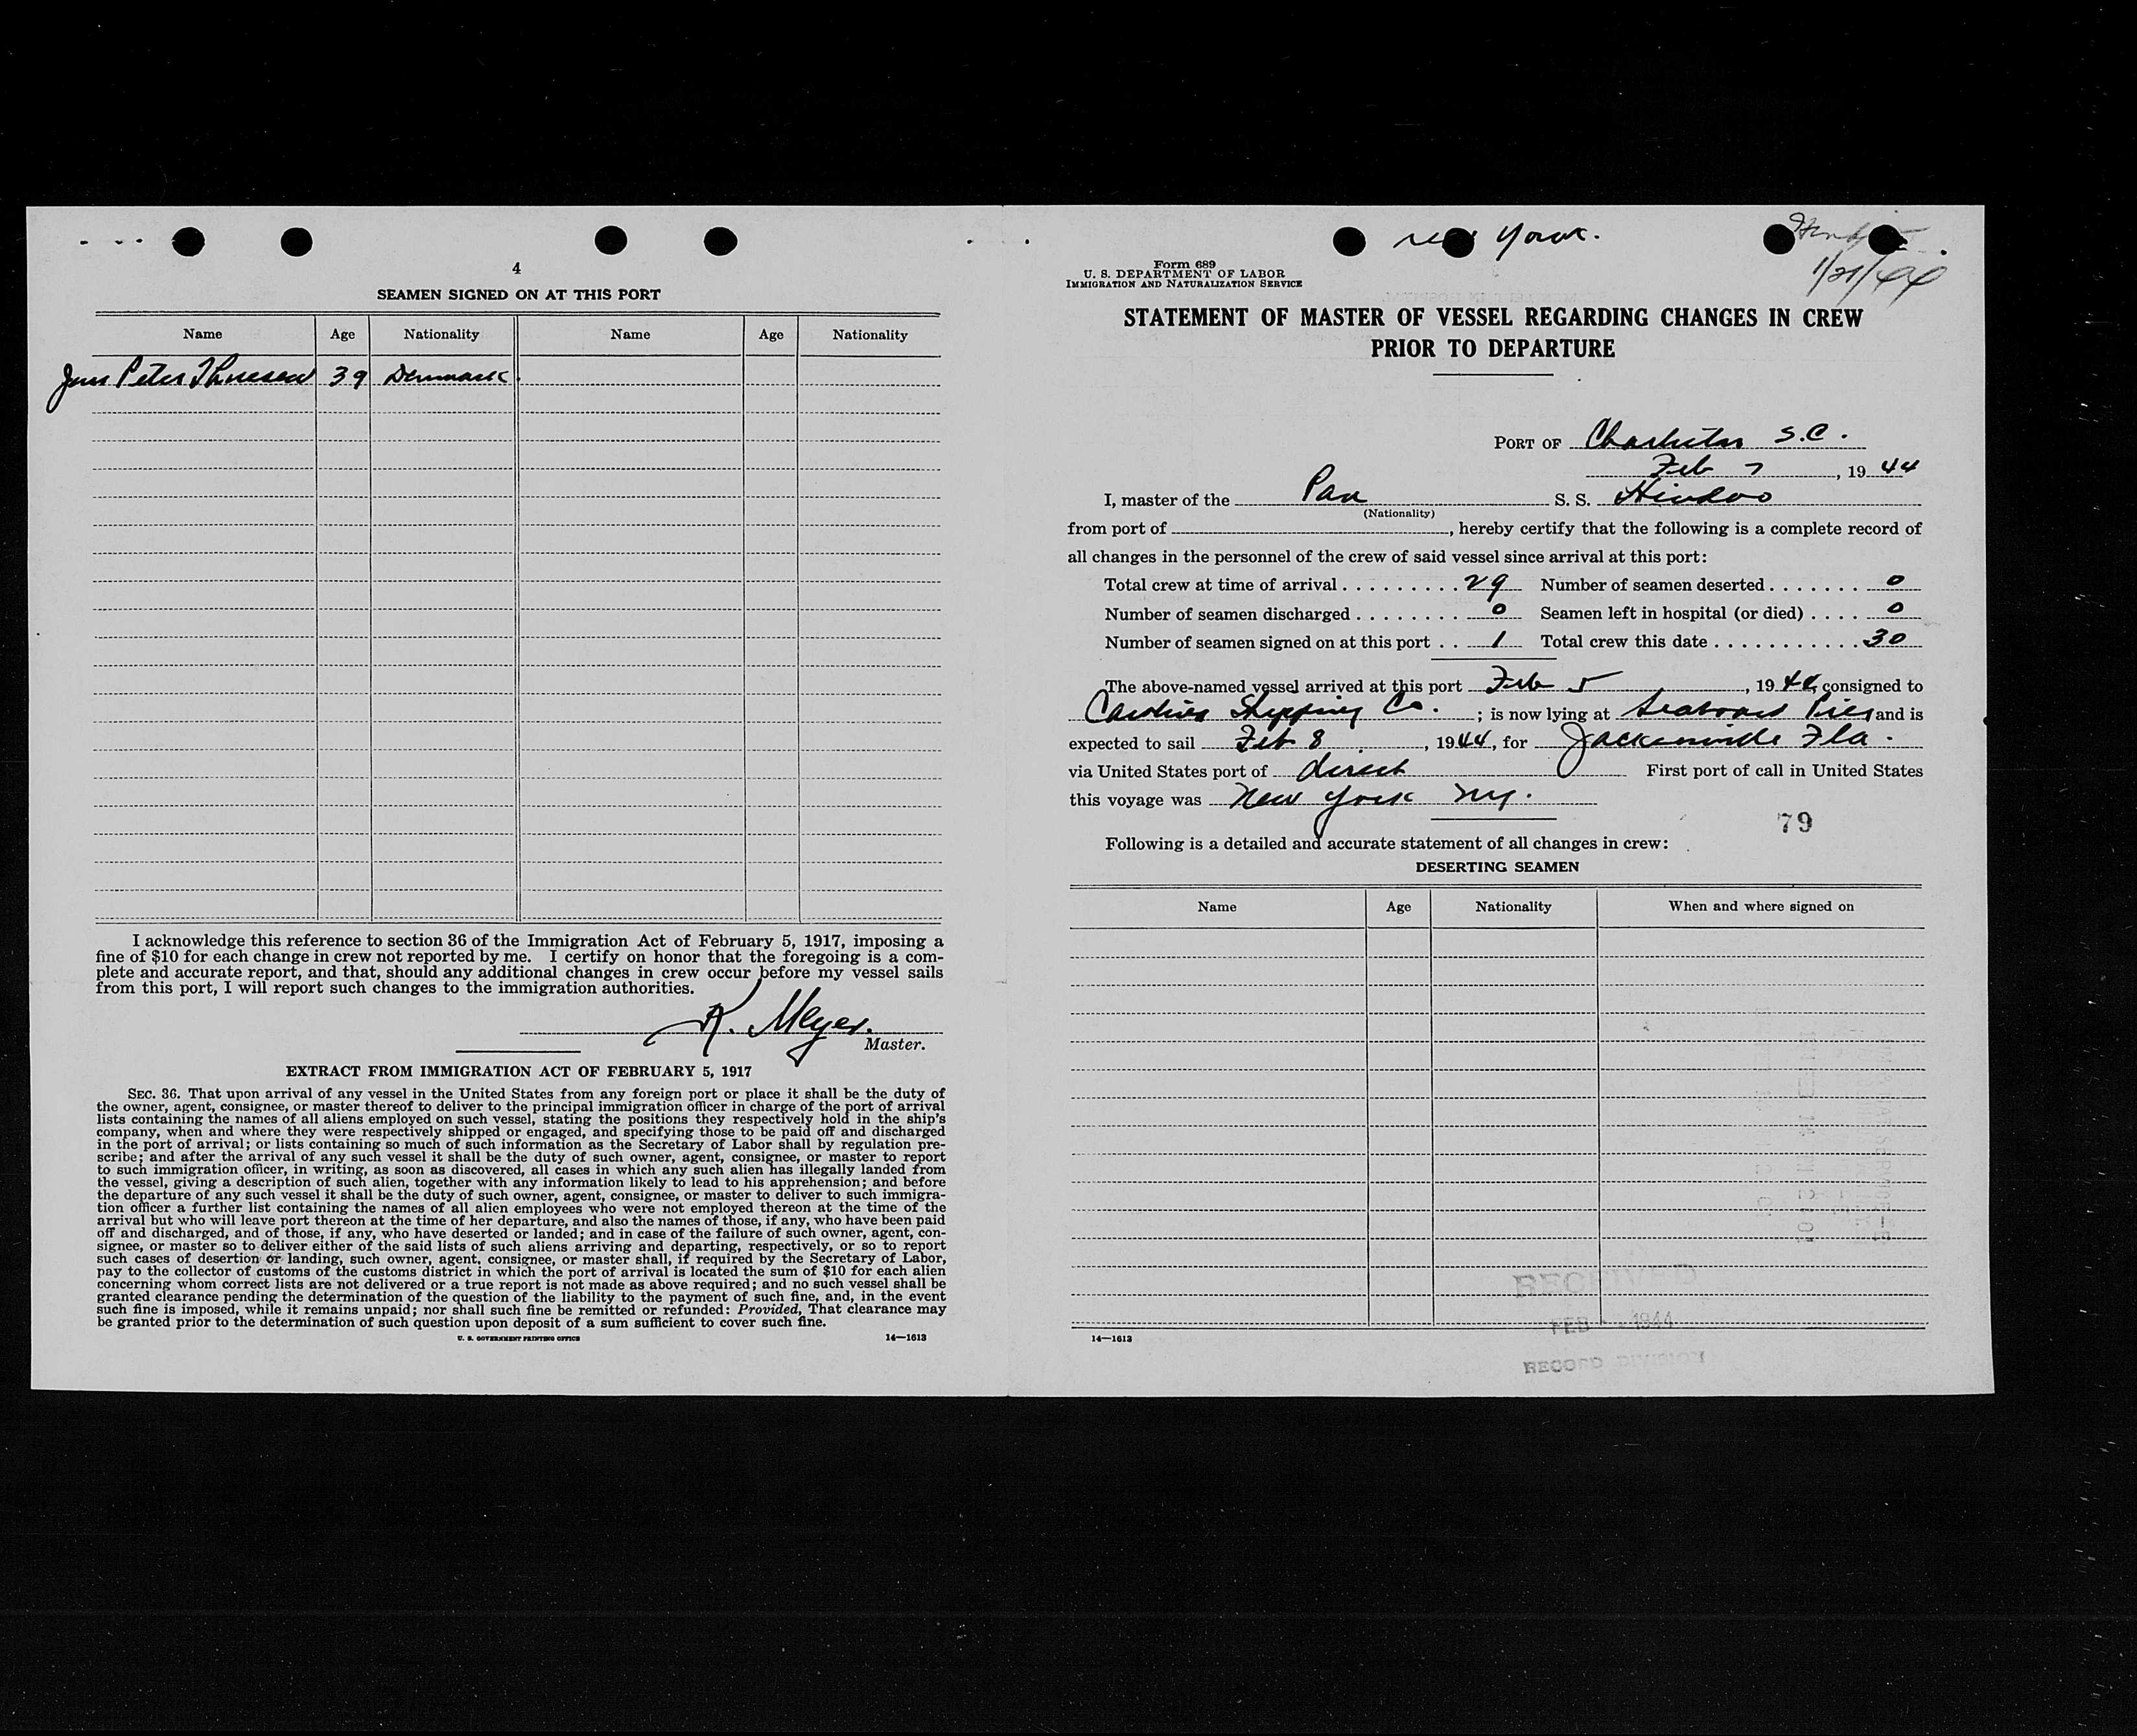 4
SEAMEN SIGNED ON AT THIS PORT
Name Age Nationality Name Age Nationality
Jens Peter Thuesen 39 Denmark
I acknowledge this reference to section 36 of the Immigration Act of February 5, 1917, imposing a
fine of $10 for each change in crew not reported by me. I certify on honor that the foregoing is a com-
plete and accurate report, and that, should any additional changes in crew occur before my vessel sails
from this port, I will report such changes to the immigration authorities.
K. Meyer.
Master.
EXTRACT FROM IMMIGRATION ACT OF FEBRUARY 5, 1917
SEC. 36. That upon arrival of any vessel in the United States from any foreign port or place it shall be the duty of
the owner, agent, consignee, or master thereof to deliver to the principal immigration officer in charge of the port of arrival
lists containing the names of all aliens employed on such vessel, stating the positions they respectively hold in the ship's
company, when and where they were respectively shipped or engaged, and specifying those to be paid off and discharged
in the port of arrival; or lists containing so much of such information as the Secretary of Labor shall by regulation pre-
scribe; and after the arrival of any such vessel it shall be the duty of such owner, agent, consignee, or master to report
to such immigration officer, in writing, as soon as discovered, all cases in which any such alien has illegally landed from
the vessel, giving a description of such alien, together with any information likely to lead to his apprehension; and before
the departure of any such vessel it shall be the duty of such owner, agent, consignee, or master to deliver to such immigra-
tion officer a further list containing the names of all alien employees who were not employed thereon at the time of the
arrival but who will leave port thereon at the time of her departure, and also the names of those, if any, who have been paid
off and discharged, and of those, if any, who have deserted or landed; and in case of the failure of such owner, agent, con-
signee, or master so to deliver either of the said lists of such aliens arriving and departing, respectively, or so to report
such cases of desertion or landing, such owner, agent, consignee, or master shall, if required by the Secretary of Labor,
pay to the collector of customs of the customs district in which the port of arrival is located the sum of $10 for each alien
concerning whom correct lists are not delivered or a true report is not made as above required; and no such vessel shall be
granted clearance pending the determination of the question of the liability to the payment of such fine, and, in the event
such fine is imposed, while it remains unpaid; nor shall such fine be remitted or refunded: Provided, That clearance may
be granted prior to the determination of such question upon deposit of a sum sufficient to cover such fine.
U. S. GOVERNMENT PRINTING OFFICE 14—1613
New York.
1/21/44
Form 689
U. S. DEPARTMENT OF LABOR
IMMIGRATION AND NATURALIZATION SERVICE
STATEMENT OF MASTER OF VESSEL REGARDING CHANGES IN CREW
PRIOR TO DEPARTURE
PORT OF Charleston S.C.
Feb 7, 1944
I, master of the Pan S. S. Hindoo
(Nationality)
from port of , hereby certify that the following is a complete record of
all changes in the personnel of the crew of said vessel since arrival at this port:
Total crew at time of arrival 29 Number of seamen deserted 0
Number of seamen discharged 0 Seamen left in hospital (or died) 0
Number of seamen signed on at this port 1 Total crew this date 30
The above-named vessel arrived at this port Feb 5, 1944, consigned to
Carolina Shipping Co. ; is now lying at Seaboard Pier and is
expected to sail Feb 8, 1944, for Jacksonville Fla.
via United States port of direct First port of call in United States
this voyage was New York NY.
79
Following is a detailed and accurate statement of all changes in crew:
DESERTING SEAMEN
Name Age Nationality When and where signed on
RECEIVED
FEB 1944
14—1613
RECORD DIVISION